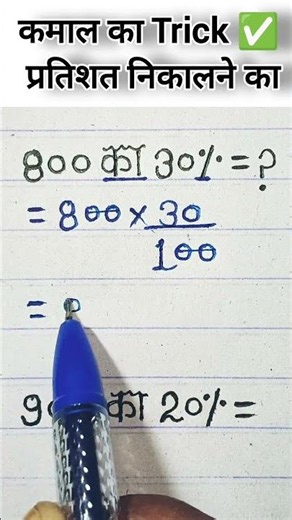 कमाल का Trick ✅
प्रतिशत निकालने का
800 का 30% = ?
= 800 × 30
100
=
का 20% =